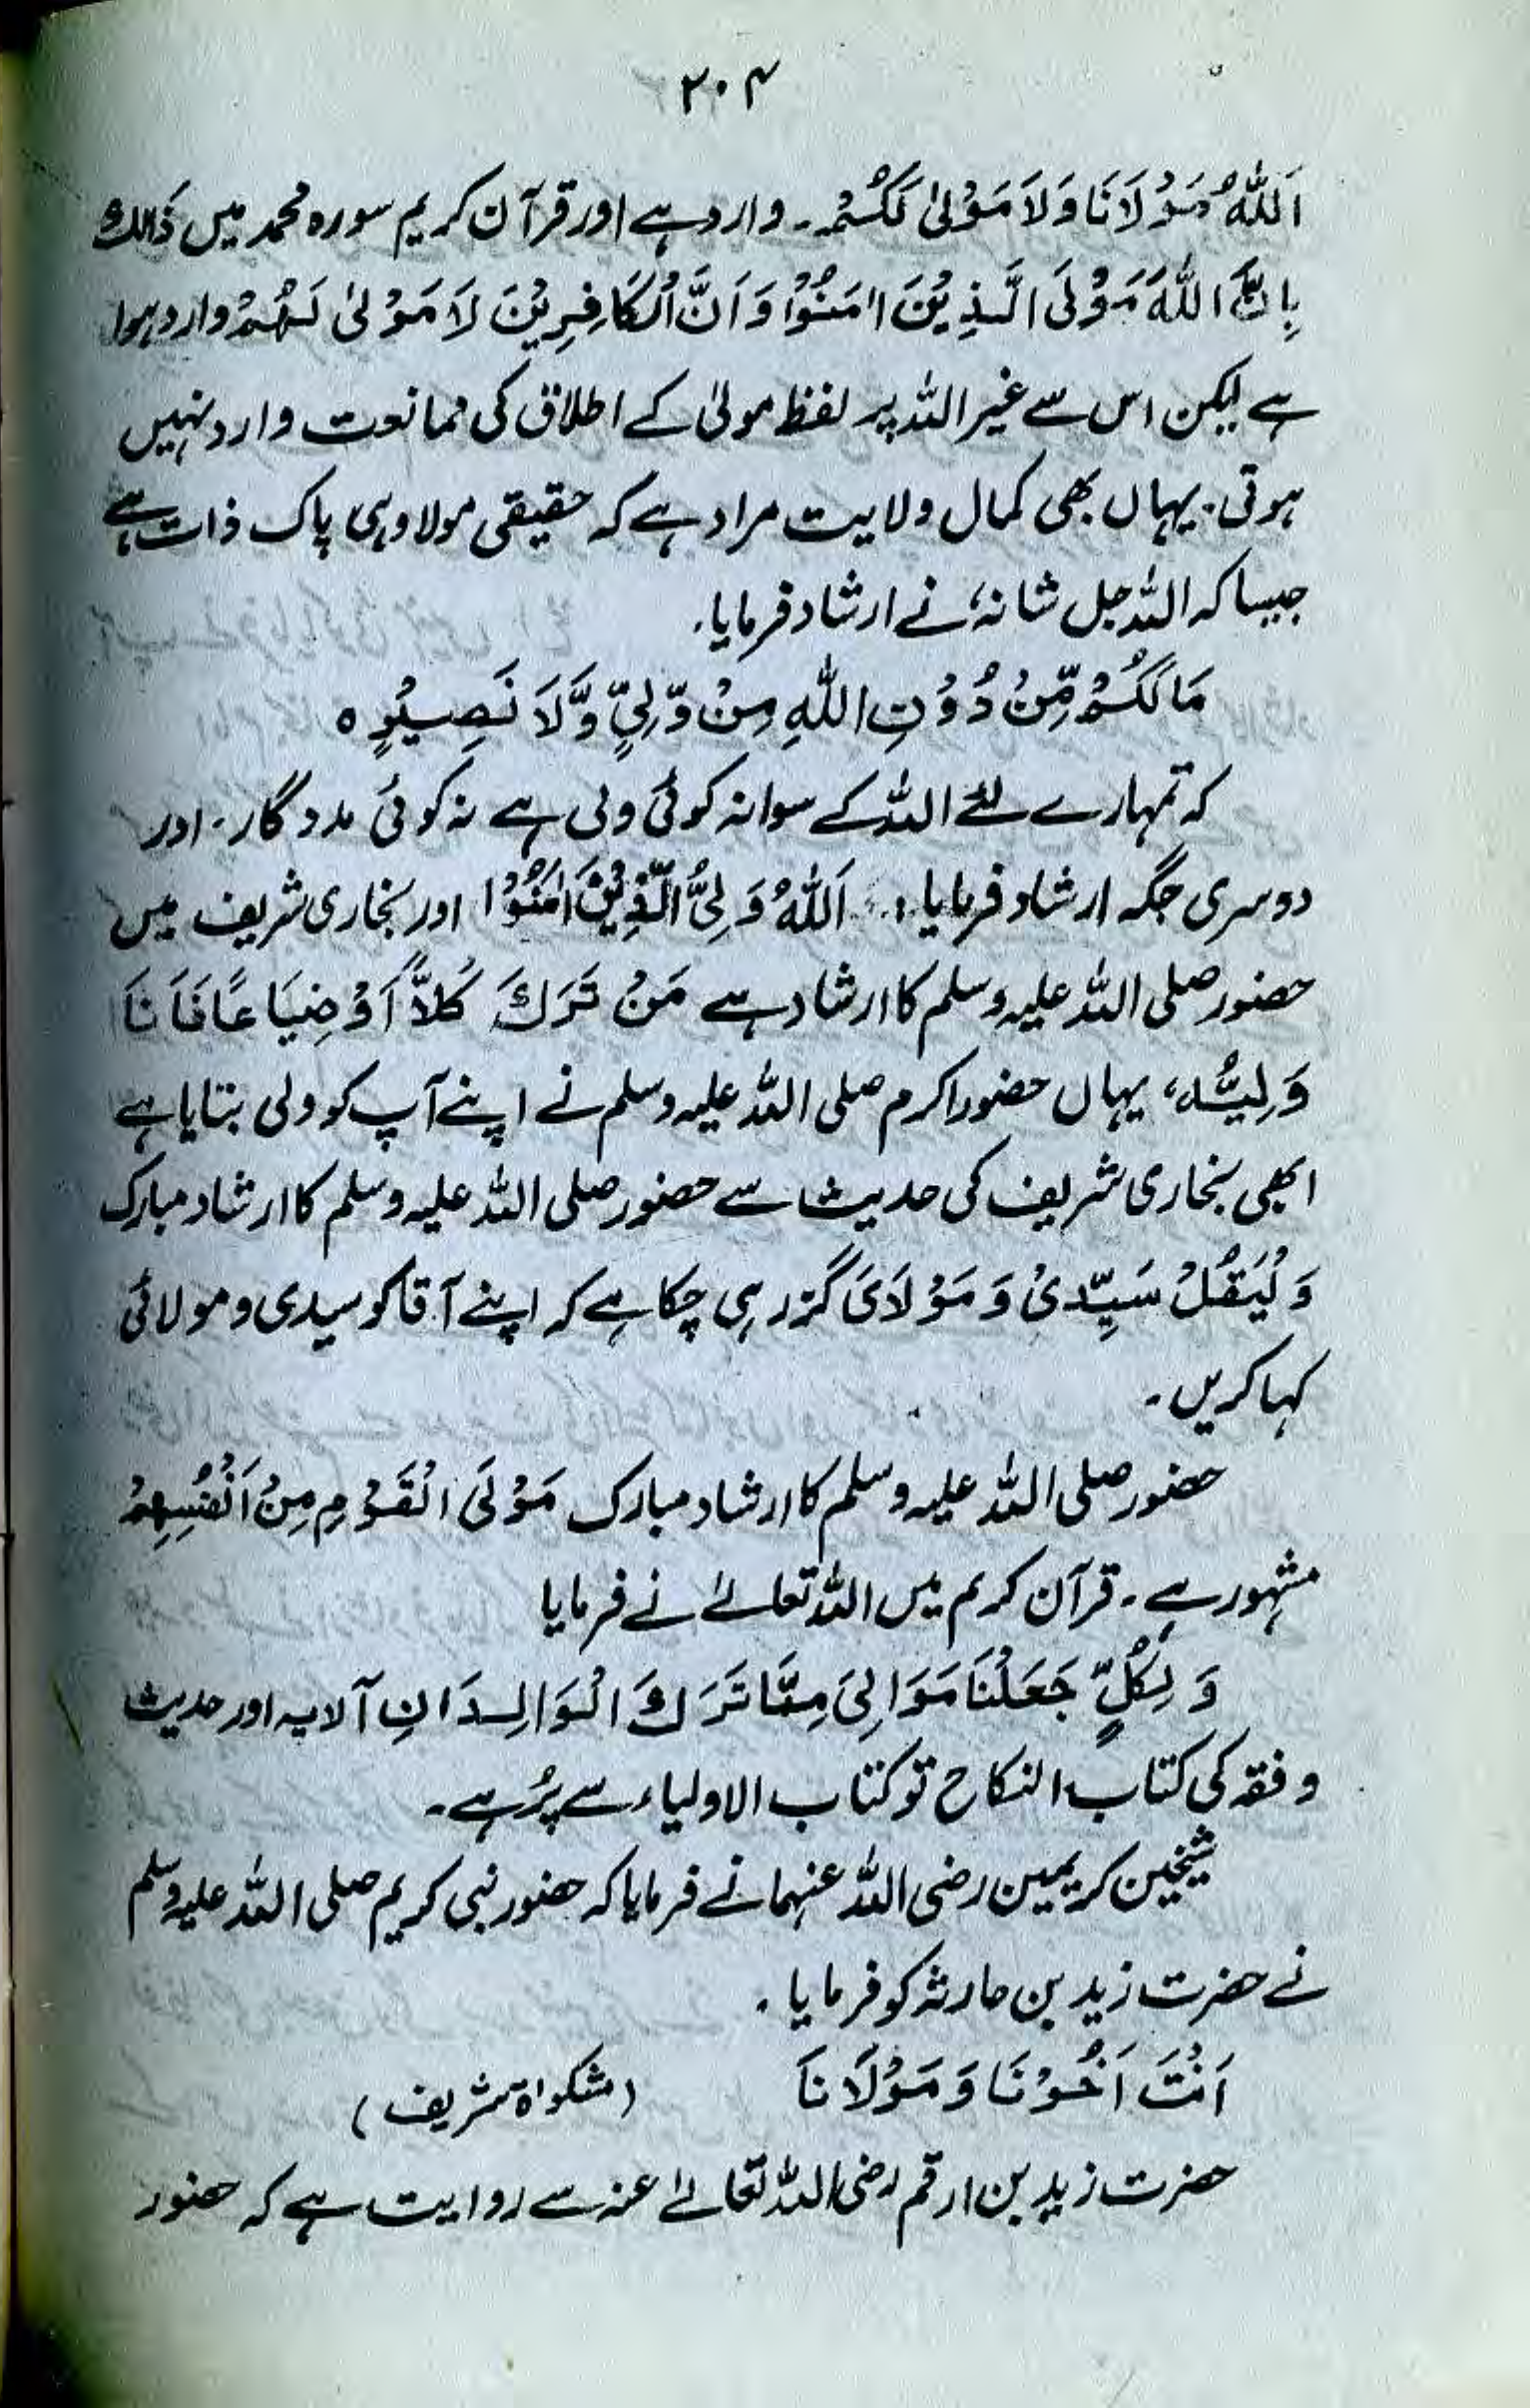 ۲۰۴
اَللّٰهُ مَوْلَانَا وَلَا مَوْلیٰ لَكُمْ۔ وارد ہے اور قرآن کریم سورہ محمد میں ذٰلِكَ
بِاَنَّ اللّٰهَ مَوْلَی الَّذِیْنَ اٰمَنُوْا وَ اَنَّ الْكَافِرِیْنَ لَا مَوْلیٰ لَهُمْ وارد ہوا
ہے لیکن اس سے غیر اللہ پر لفظ مولیٰ کے اطلاق کی ممانعت وارد نہیں
ہوتی۔ یہاں بھی کمال ولایت مراد ہے کہ حقیقی مولا وہی پاک ذات ہے
جیسا کہ اللہ جل شانہٗ نے ارشاد فرمایا۔
مَا لَكُمْ مِّنْ دُوْنِ اللّٰهِ مِنْ وَّلِیٍّ وَّلَا نَصِیْرٍ ہ
کہ تمہارے لئے اللہ کے سوا نہ کوئی ولی ہے نہ کوئی مددگار۔ اور
دوسری جگہ ارشاد فرمایا، اَللّٰهُ وَلِیُّ الَّذِیْنَ اٰمَنُوْا اور بخاری شریف میں
حضور صلی اللہ علیہ وسلم کا ارشاد ہے مَنْ تَرَكَ كَلاًّ اَوْ ضِیَاعًا فَاَنَا
وَلِیُّہ، یہاں حضور اکرم صلی اللہ علیہ وسلم نے اپنے آپ کو ولی بتایا ہے
ابھی بخاری شریف کی حدیث سے حضور صلی اللہ علیہ وسلم کا ارشاد مبارک
وَ لْیَقُلْ سَیِّدِیْ وَ مَوْلَایَ گزر ہی چکا ہے کہ اپنے آقا کو سیدی و مولائی
کہا کریں۔
حضور صلی اللہ علیہ وسلم کا ارشاد مبارک مَوْلَی الْقَوْمِ مِنْ اَنْفُسِهِمْ
مشہور ہے۔ قرآن کریم میں اللہ تعالےٰ نے فرمایا
وَ لِكُلٍّ جَعَلْنَا مَوَالِیَ مِمَّا تَرَكَ الْوَالِدَانِ آلایہ اور حدیث
و فقہ کی کتاب النکاح تو کتاب الاولیاء سے پُر ہے۔
شیخین کریمین رضی اللہ عنہما نے فرمایا کہ حضور نبی کریم صلی اللہ علیہ وسلم
نے حضرت زید بن حارثہ کو فرمایا۔
اَنْتَ اَخُوْنَا وَ مَوْلَانَا (مشکواۃ شریف)
حضرت زید بن ارقم رضی اللہ تعالےٰ عنہ سے روایت ہے کہ حضور